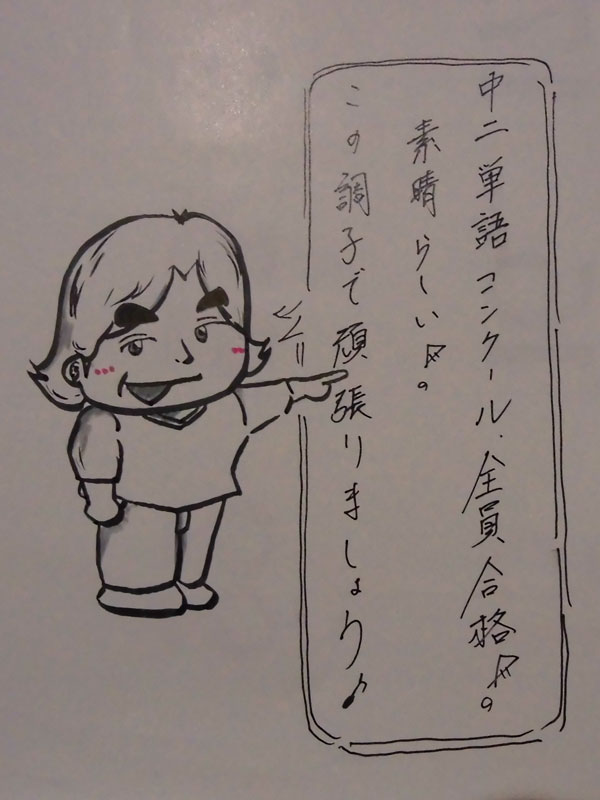 中二単語コンクール、全員合格〆。
素晴らしい〆。
この調子で頑張りましょう♪